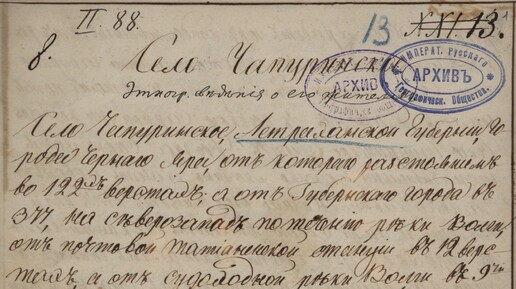 II. 88.
13
XXI. 13.
8.
Село Чапуринское
Этногр. свѣдѣнія о его жите
АРХИВ
ИМПЕРАТ. Русскаго
АРХИВЪ
Географическ. Общества.
Село Чапуринское, Астраханской Губерніи, Го-
рода Чернаго Яра, отъ котораго разстояніемъ
во 122хъ верстахъ, а отъ Губернскаго города въ
377, на сѣверозападъ по теченію рѣки Волги,
отъ почтовой Татьянинской станціи въ 12 верс
тахъ, а отъ судоходной рѣки Волги въ 9ти